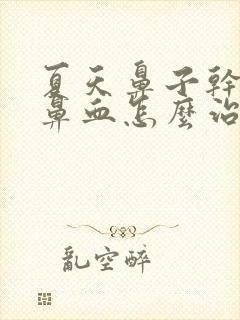 夏天鼻子幹
鼻血怎麼治
亂空醉